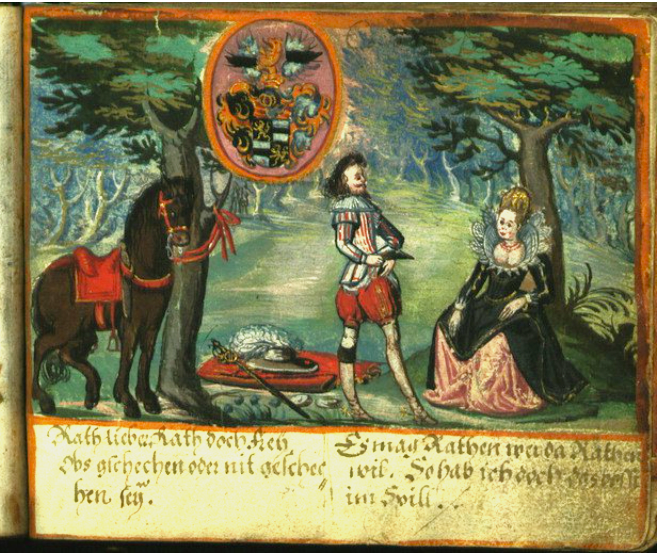 Rath lieber Rath doch frey
Obs gschechen oder nit geschee
hen seÿ.
Es mag Rathen wer da Rathen
wil. So hab ich doch das best
im Spill.